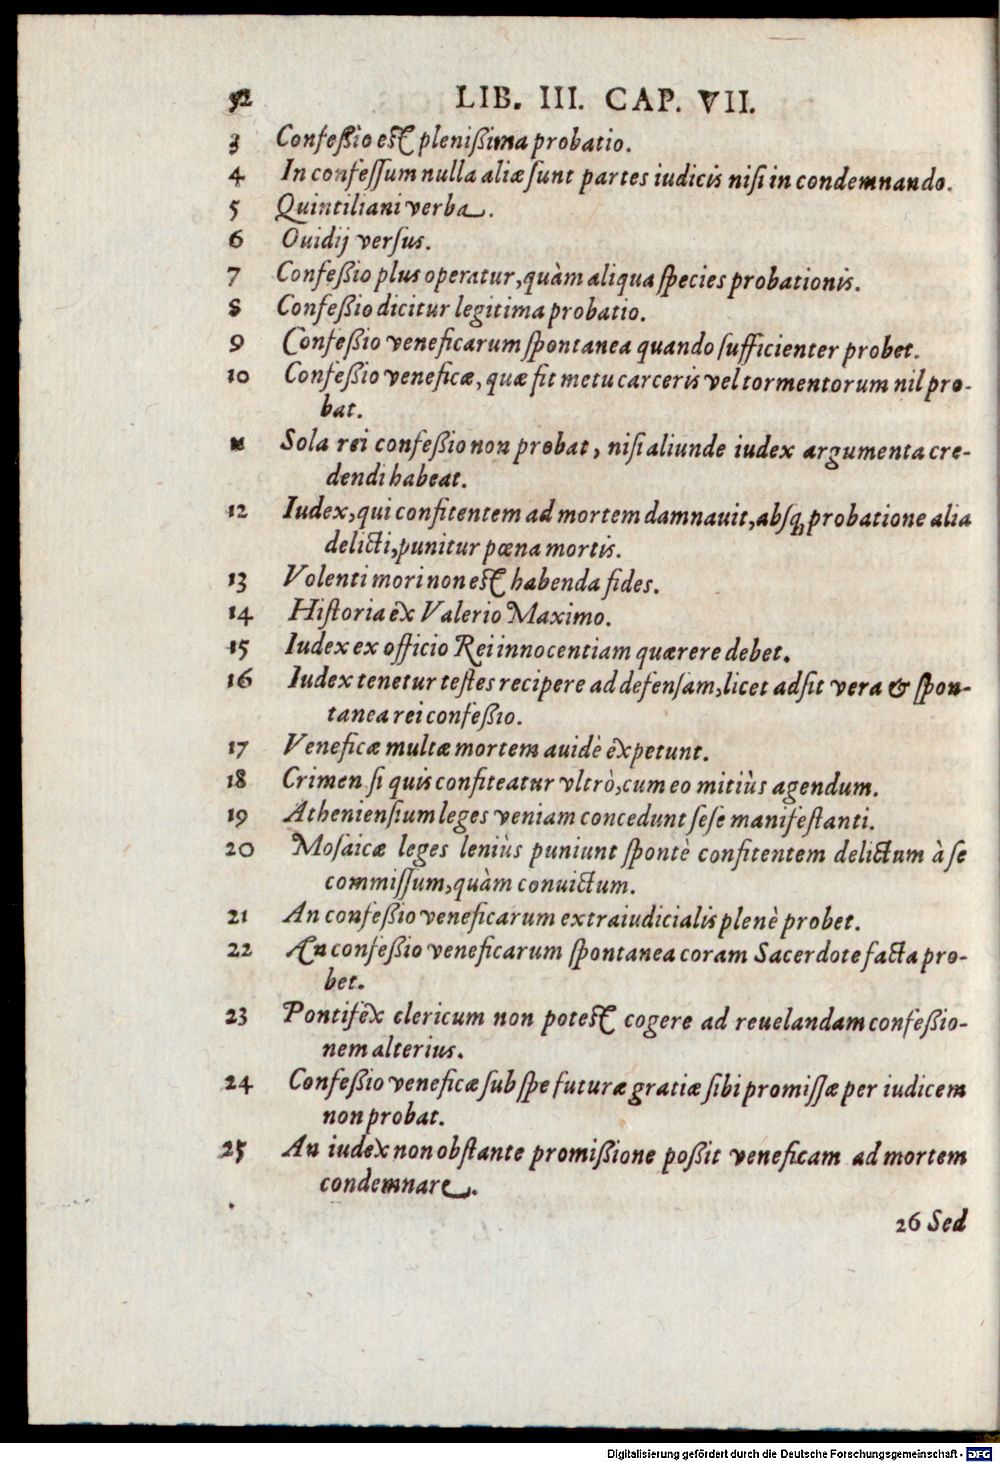 52 LIB. III. CAP. VII.
3 Confeßio est plenißima probatio.
4 In confeſſum nulla aliæ ſunt partes iudicis niſi in condemnando.
5 Quintiliani verba.
6 Ouidij verſus.
7 Confeßio plus operatur, quàm aliqua ſpecies probationis.
8 Confeßio dicitur legitima probatio.
9 Confeßio veneficarum ſpontanea quando ſufficienter probet.
10 Confeßio veneficæ, quæ fit metu carceris vel tormentorum nil pro-
bat.
11 Sola rei confeßio non probat, niſi aliunde iudex argumenta cre-
dendi habeat.
12 Iudex, qui confitentem ad mortem damnauit, abſq; probatione alia
delicti, punitur pœna mortis.
13 Volenti mori non est habenda fides.
14 Hiſtoria ex Valerio Maximo.
15 Iudex ex officio Rei innocentiam quærere debet.
16 Iudex tenetur teſtes recipere ad defenſam, licet adſit vera & ſpon-
tanea rei confeßio.
17 Veneficæ multæ mortem auidè expetunt.
18 Crimen ſi quis confiteatur vltrò, cum eo mitiùs agendum.
19 Athenienſium leges veniam concedunt ſeſe manifeſtanti.
20 Moſaicæ leges leniùs puniunt ſpontè confitentem delictum à ſe
commiſſum, quàm conuictum.
21 An confeßio veneficarum extraiudicialis plenè probet.
22 An confeßio veneficarum ſpontanea coram Sacerdote facta pro-
bet.
23 Pontifex clericum non potest cogere ad reuelandam confeßio-
nem alterius.
24 Confeßio veneficæ ſub ſpe futuræ gratiæ ſibi promiſſæ per iudicem
non probat.
25 An iudex non obſtante promißione poßit veneficam ad mortem
condemnare.
26 Sed
Digitalisierung gefördert durch die Deutsche Forschungsgemeinschaft - DFG